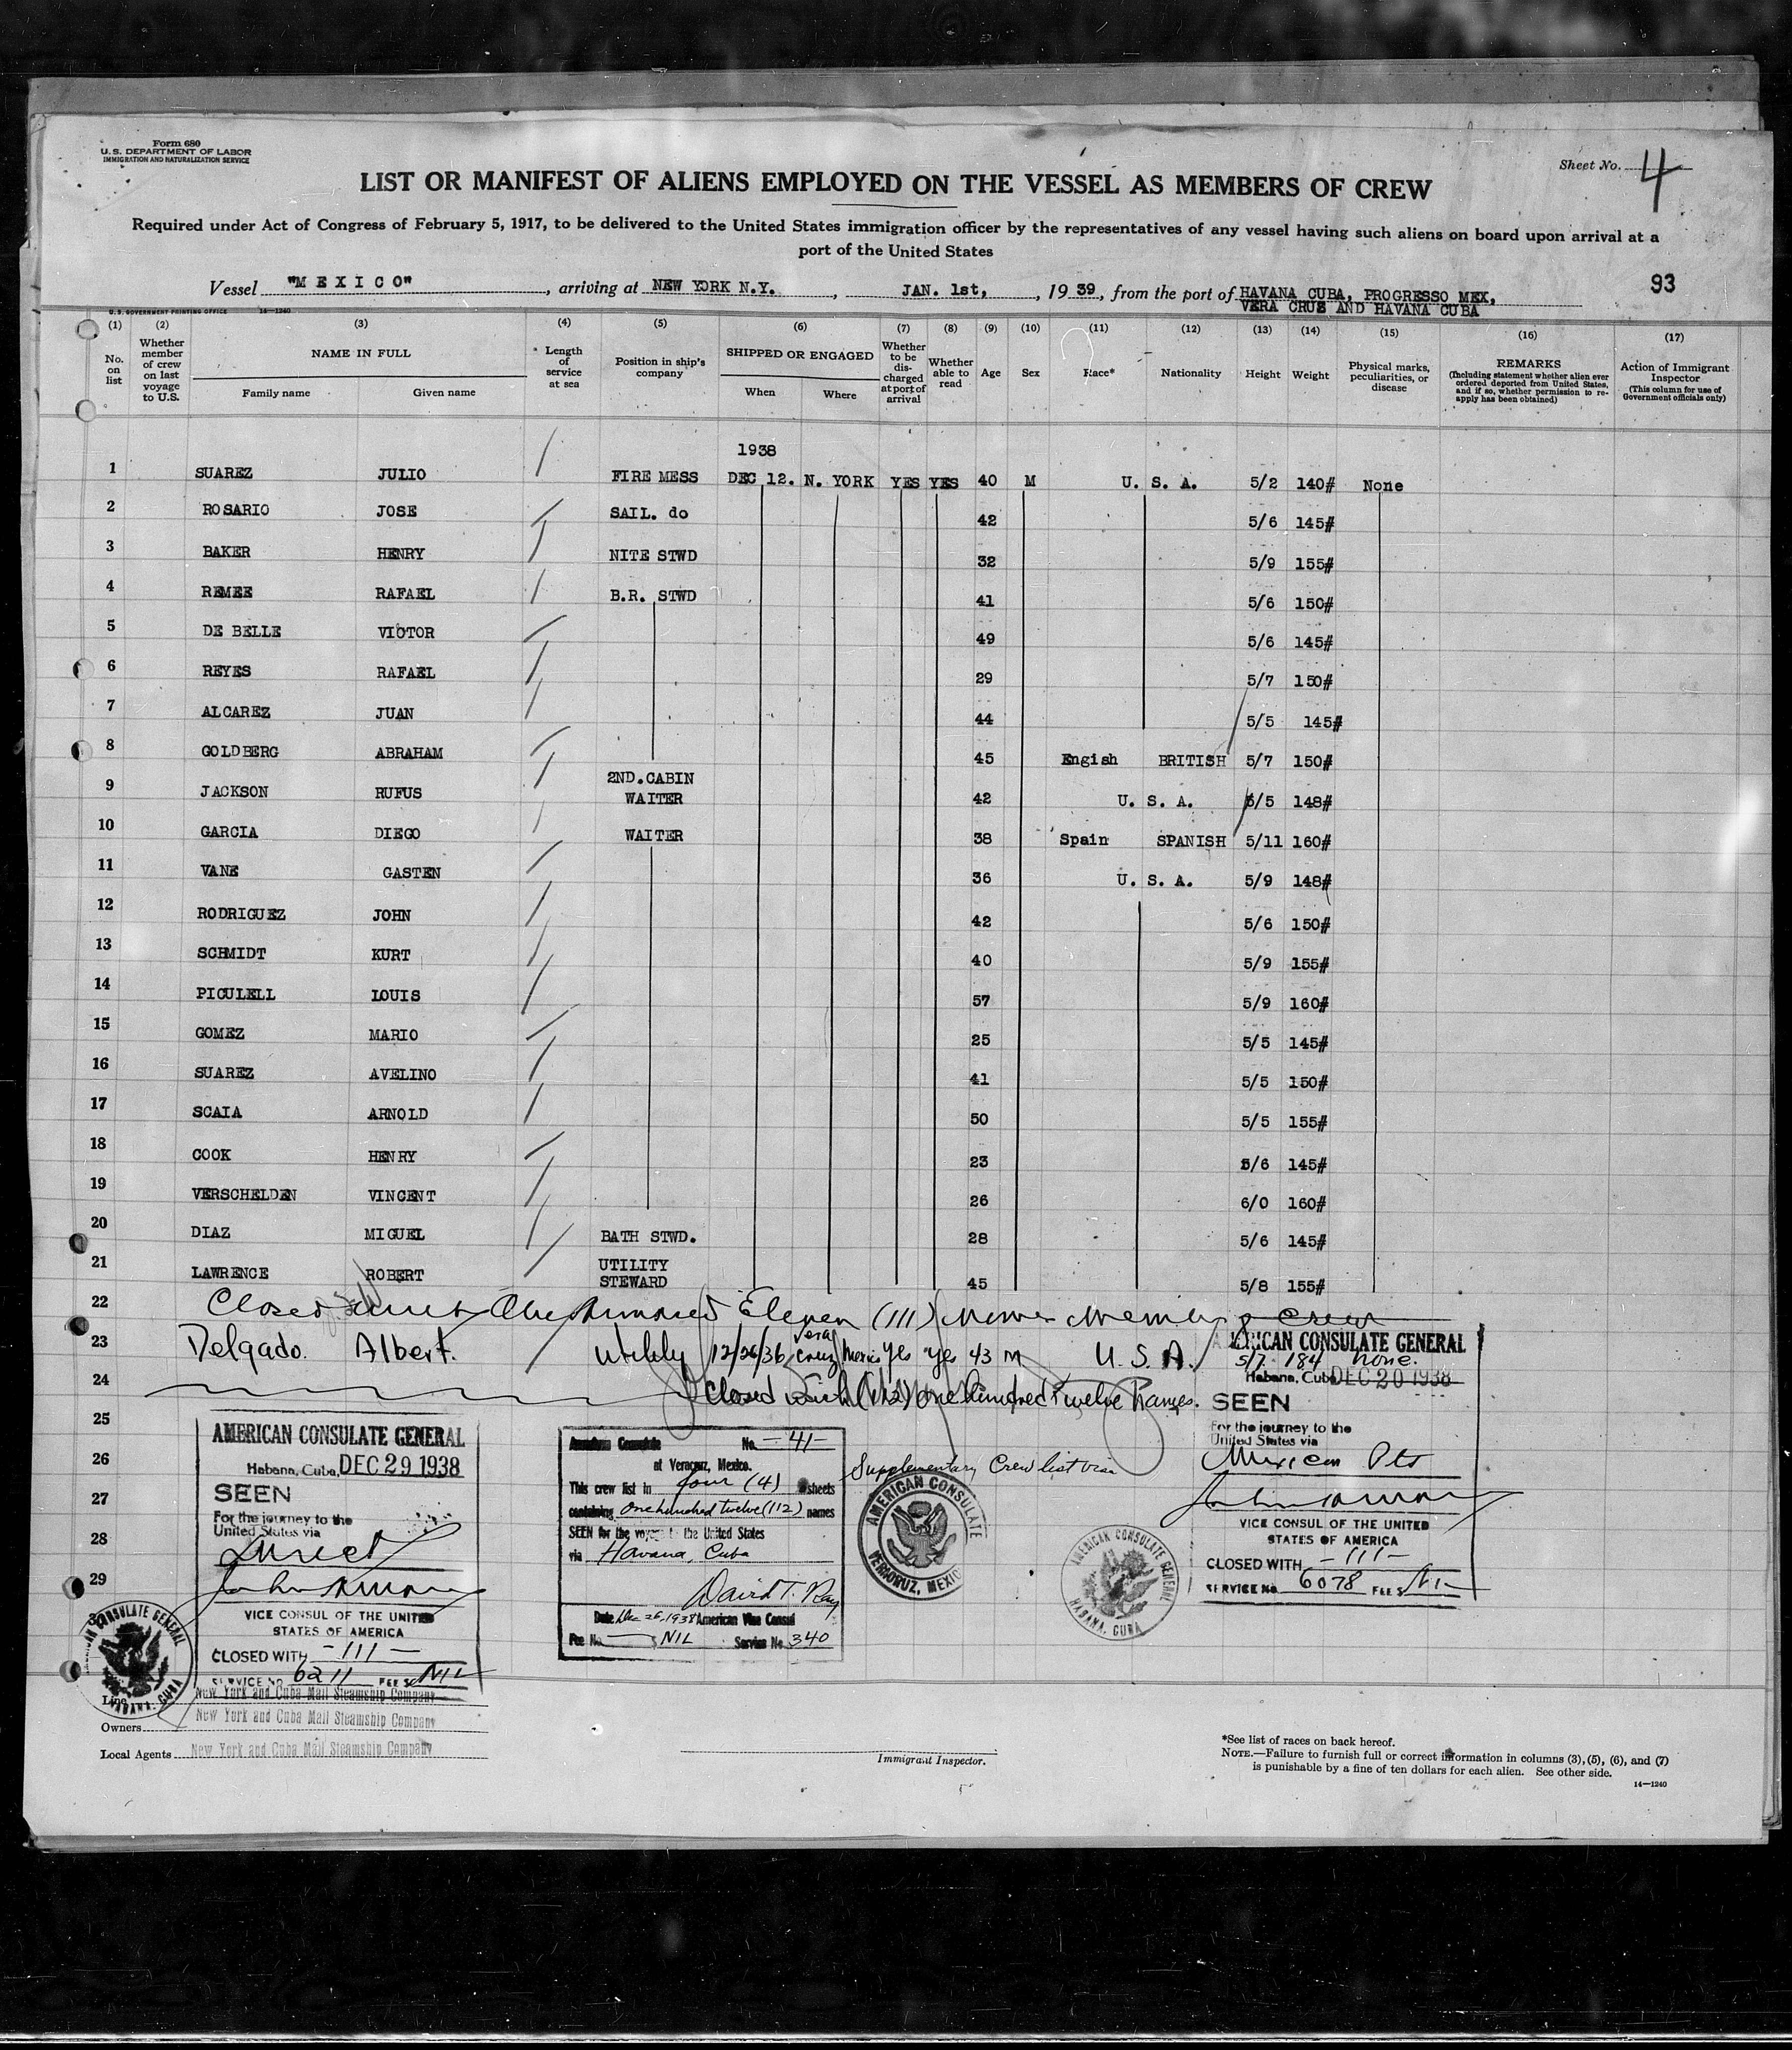 Form 680
U. S. DEPARTMENT OF LABOR
IMMIGRATION AND NATURALIZATION SERVICE
Sheet No. 4
LIST OR MANIFEST OF ALIENS EMPLOYED ON THE VESSEL AS MEMBERS OF CREW
Required under Act of Congress of February 5, 1917, to be delivered to the United States immigration officer by the representatives of any vessel having such aliens on board upon arrival at a
port of the United States
Vessel "MEXICO", arriving at NEW YORK N.Y., JAN. 1st, 1939, from the port of HAVANA CUBA, PROGRESSO MEX,
VERA CRUS AND HAVANA CUBA
93
U. S. GOVERNMENT PRINTING OFFICE 14-1240
(1) (2) (3) (4) (5) (6) (7) (8) (9) (10) (11) (12) (13) (14) (15) (16) (17)
No. on list
Whether member of crew on last voyage to U.S.
NAME IN FULL
Family name Given name
Length of service at sea
Position in ship's company
SHIPPED OR ENGAGED
When Where
Whether to be discharged at port of arrival
Whether able to read
Age
Sex
Race*
Nationality
Height
Weight
Physical marks, peculiarities, or disease
REMARKS
(Including statement whether alien ever ordered deported from United States, and if so, whether permission to reapply has been obtained)
Action of Immigrant Inspector
(This column for use of Government officials only)
1938
1 SUAREZ JULIO FIRE MESS DEC 12. N. YORK YES YES 40 M U. S. A. 5/2 140# None
2 ROSARIO JOSE SAIL. do 42 5/6 145#
3 BAKER HENRY NITE STWD 32 5/9 155#
4 REMEE RAFAEL B.R. STWD 41 5/6 150#
5 DE BELLE VICTOR 49 5/6 145#
6 REYES RAFAEL 29 5/7 150#
7 ALCAREZ JUAN 44 5/5 145#
8 GOLDBERG ABRAHAM 45 Engish BRITISH 5/7 150#
9 JACKSON RUFUS 2ND.CABIN WAITER 42 U. S. A. 5/5 148#
10 GARCIA DIEGO WAITER 38 Spain SPANISH 5/11 160#
11 VANE GASTEN 36 U. S. A. 5/9 148#
12 RODRIGUEZ JOHN 42 5/6 150#
13 SCHMIDT KURT 40 5/9 155#
14 PICULELL LOUIS 57 5/9 160#
15 GOMEZ MARIO 25 5/5 145#
16 SUAREZ AVELINO 41 5/5 150#
17 SCAIA ARNOLD 50 5/5 155#
18 COOK HENRY 23 5/6 145#
19 VERSCHELDEN VINCENT 26 6/0 160#
20 DIAZ MIGUEL BATH STWD. 28 5/6 145#
21 LAWRENCE ROBERT UTILITY STEWARD 45 5/8 155#
22 Closed One Hundred Eleven (111) Crew
23 Delgado. Albert. Utility 12/26/36 Vera Cruz Mexico yes yes 43 m U. S. A. 5/7 184 none.
24 Closed with (112) one hundred twelve Names.
25
26
27
28
29
AMERICAN CONSULATE GENERAL
Habana, Cuba, DEC 29 1938
SEEN
For the journey to the
United States via
Direct
VICE CONSUL OF THE UNITED
STATES OF AMERICA
CLOSED WITH -111-
SERVICE NO 6211 FEE $ NIL
AMERICAN CONSULATE GENERAL
HABANA, CUBA
American Consulate No. -41-
at Veracruz, Mexico.
This crew list in four (4) sheets
containing One hundred twelve (112) names
SEEN for the voyage to the United States
via Havana, Cuba
David T. Ray
Date Dec 26, 1938 American Vice Consul
Fee No. $ NIL Service No. 340
Supplementary Crew list visa
AMERICAN CONSULATE
VERACRUZ, MEXICO
AMERICAN CONSULATE GENERAL
HABANA, CUBA
AMERICAN CONSULATE GENERAL
Habana, Cuba DEC 20 1938
SEEN
For the journey to the
United States via
Mexican Pts
VICE CONSUL OF THE UNITED
STATES OF AMERICA
CLOSED WITH -111-
SERVICE No. 6078 FEE $
Line New York and Cuba Mail Steamship Company
Owners New York and Cuba Mail Steamship Company
Local Agents New York and Cuba Mail Steamship Company
Immigrant Inspector.
*See list of races on back hereof.
NOTE.—Failure to furnish full or correct information in columns (3), (5), (6), and (7)
is punishable by a fine of ten dollars for each alien. See other side.
14—1240